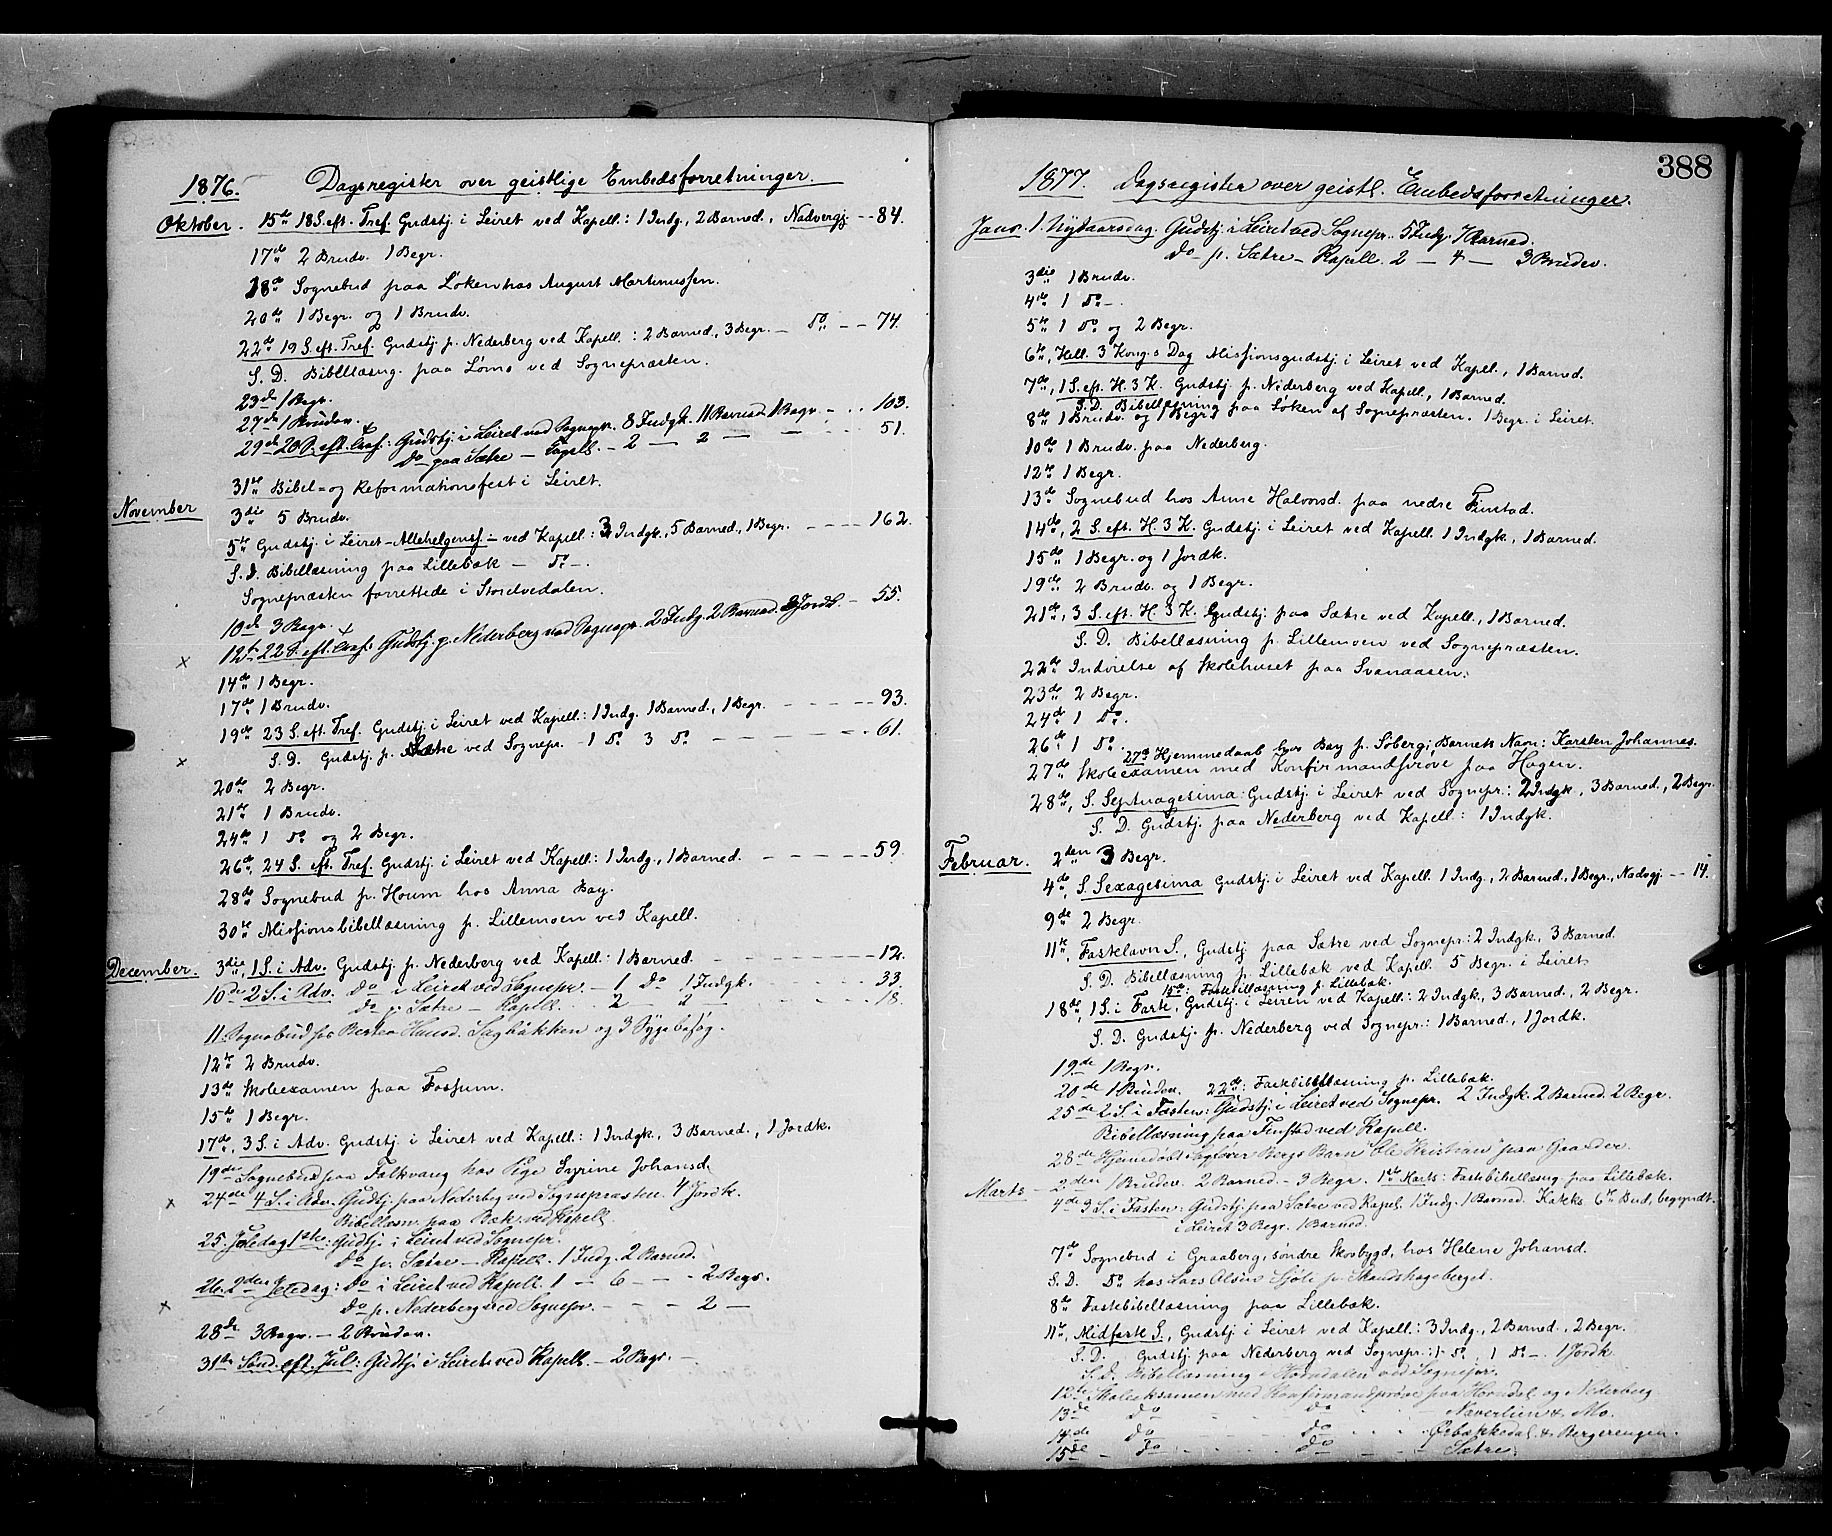 1876. Dagsregister over geistlige Embedsforretninger.
Oktober. 15de 18 S. eft. Tref. Gudstj. i Leiret ved Kapell.: 1 Indg., 2 Barned., Nadvergj. -- 84.
17de 2 Brudv. 1 Begr.
18de Sognebud paa Løken hos August Martinussen.
20de 1 Begr. og 1 Brudv.
22de 19 S. eft. Tref. Gudstj. p. Nederberg ved Kapell.: 2 Barned., 3 Begr. - Do -- 74.
S. D. Bibellæsng. paa Lømo ved Sognepræsten.
23de 1 Begr.
27de 1 Brudev.
29de 20 S. eft. Gudstj. i Leiret ved Sognepr. 8 Indgk. 11 Barned. 1 Begr. - .. 103.
Do paa Sætre - Capell. - 2 - 2 - - - 51.
31te Bibel- og Reformationsfest i Leiret.
November 3die 5 Brudv.
5te Gudstj. i Leiret - Allehelgensf. - ved Kapell.: 3 Indgk., 5 Barned., 1 Begr. ---- 162.
S. D. Bibellæsning paa Lillebæk - Do -.
Sognepræsten forrettede i Storelvedalen.
10de 3 Begr.
12te 22 S. eft. Gudstj. p. Nederberg ved Sognepr. 2 Indg. 2 Barned. 2 Jordk. - 55.
14de 1 Begr.
17de 1 Brudv.
19de 23 S. eft. Tref. Gudstj. i Leiret ved Kapell.: 1 Indg. 1 Barned., 1 Begr. ----- 93.
S. D. Gudstj. p. Sætre ved Sognepr. - 1 Do 3 Do ------ 61.
20de 2 Begr.
21de 1 Brudv.
24de 1 Do og 2 Begr.
26de 24 S. eft. Tref. Gudstj. i Leiret ved Kapell.: 1 Indg., 1 Barned. ----- 59.
28de Sognebud p. Houm hos Anna Bay.
30te Missionsbibellæsning p. Lillemoen ved Kapell.
December. 3die, 1 S. i Adv. Gudstj. p. Nederberg ved Kapell.: 1 Barned. ------ 12.
10de 2 S. i Adv. Do i Leiret ved Sognepr. - 1 Do 1 Indgk. 33.
Do p. Sætre - Kapell. 2 - " - 18.
11. Sognebud hos Hansd. Sagbakken og 3 Sygebesøg.
12te 2 Brudv.
13de Skoleexamen paa Fossum.
15de 1 Begr.
17de, 3 S. i Adv. Gudstj. i Leiret ved Kapell.: 1 Indgk., 3 Barned., 1 Jordk.
19de Sognebud paa Falkvang hos Pige Syrine Johansd.
24de 4 S. i Adv. Gudstj. paa Nederbeg ved Sognepræsten. 4 Jordk.
Bibellæsn. paa Bæk ved Kapell
25 Juledag 1ste: Gudstj. i Leiret ved Sognepr.
Do p. Sætre - Kapell. 1 Indg. 2 Barned.
26. 2den Juledag: Do i Leiret ved Kapell. 1 - 6 - - 2 Begr.
Do p. Nederberg ved Sognepr. - - - 2 -
28de 3 Begr. - 2 Brudev.
31te Sönd. eft. Jul: Gudtj. i Leiret ved Kapell. - 2 Begr. -
388
1877. Dagsregister over geistl. Embedsforretninger.
Janr. 1. Nytaarsdag. Gudstj. i Leiret ved Sognepr. 5 Indg. 7 Barned.
Do p. Sætre - Kapell. 2 - 4 - 3 Brudev.
3die 1 Brudv.
4de 1 Do -.
5te 1 Do og 2 Begr.
6te, Hell. 3 Kong.s Dag Missionsgudstj. i Leiret ved Kapell., 1 Barned.
7de, 1 S. eft. H. 3 K. Gudstj. p. Nederberg ved Kapell., 1 Barned.
S. D. Bibellæsning paa Løken af Sognepræsten. 1 Begr. i Leiret.
8de 1 Brudv. og 1 Begr.
10de 1 Brudv. paa Nederberg.
12te 1 Begr.
13de Sognebud hos Anne Halvorsd. paa nedre Finstad.
14de, 2 S. eft. H. 3 K. Gudstj. i Leiret ved Kapell. 1 Indgk., 1 Barned.
15de 1 Begr. og 1 Jordk.
19de 2 Brudv. og 1 Begr.
21de, 3 S. eft. H. 3 K. Gudstj. paa Sætre ved Kapell., 1 Barned.
S. D. Bibellæsning p. Lillemoen ved Sognepræsten.
22de Indvielse af Skolehuset paa Svenaasen.
23de 2 Begr.
24de 1 Do.
26de 1 Do. 27de Hjemmedaab hos Bay p. Søberg; Barnets Navn: Karsten Johannes.
27de Skoleexamen med Konfirmandprøve paa Hagen.
28de, S. Septuagesima: Gudstj. i Leiret ved Sognepr.: 2 Indgk., 3 Barned., 2 Begr.
S. D. Gudstj. paa Nederberg ved Kapell.: 1 Indgk.
Februar. 2den 3 Begr.
4de, S. Sexagesima Gudstj. i Leiret ved Kapell. 1 Indg., 2 Barned., 1 Begr., Nadvgj. -- 14.
9de 2 Begr.
11te, Fastelavn S., Gudstj. paa Sætre ved Sognepr.: 2 Indgk., 3 Barned.
S. D. Bibellæsning p. Lillebæk ved Kapell. 5 Begr. i Leiret
15de: Fastebibellæsning p. Lillebæk.
18de, 1 S. i Faste, Gudstj. i Leiren ved Kapell.: 2 Indgk., 3 Barned., 2 Begr.
S. D. Gudstj. p. Nederberg ved Sognepr.: 1 Barned., 1 Jordk.
19de 1 Begr.
20de 1 Brudev. 22de: Fastebibellæsning p. Lillebæk.
25de 2 S. i Fasten: Gudstj. i Leiret ved Sognepr. 2 Indgk. 2 Barned. 2 Begr.
Bibellæsning paa Finstad ved Kapell.
28de Hjemedøbt Bergs Barn Ole Kristian paa Gaarder.
Marts - 2den 1 Brudev. 2 Barned. - 3 Begr. 1ste Marts: Fastebibellæsng paa Lillebæk.
4de 3 S. i Fasten: Gudstj. paa Sætre ved Kapel. 1 Indg. 1 Barned. 6te Bud, begyndt.
i Leiret 3 Begr. 1 Barned.
7de Sognebud i Graaberg, søndre Skovbygd, hos Helene Johansd.
S. D. Do hos Lars Olsen Sjöli p. Strandshageberget.
8de Fastebibellæsning paa Lillebæk.
11te, Midfaste S., Gudstj. i Leiret ved Kapell.: 3 Indg., 2 Barned., 2 Begr.
S. D. Gudstj. paa Nederberg ved Sognepr.: 1 Do, 1 Do -. 1 Jordk
S. D. Bibellæsning i Horndalen ved Sognepr.
12te Skoleeksamen med Konfirmandprøve paa Horndal og Nederberg
13de Do Do Naverlien & Mo.
14de Do Do Øxbakkedal & Bergerengen.
15de - Do Do Sætre.